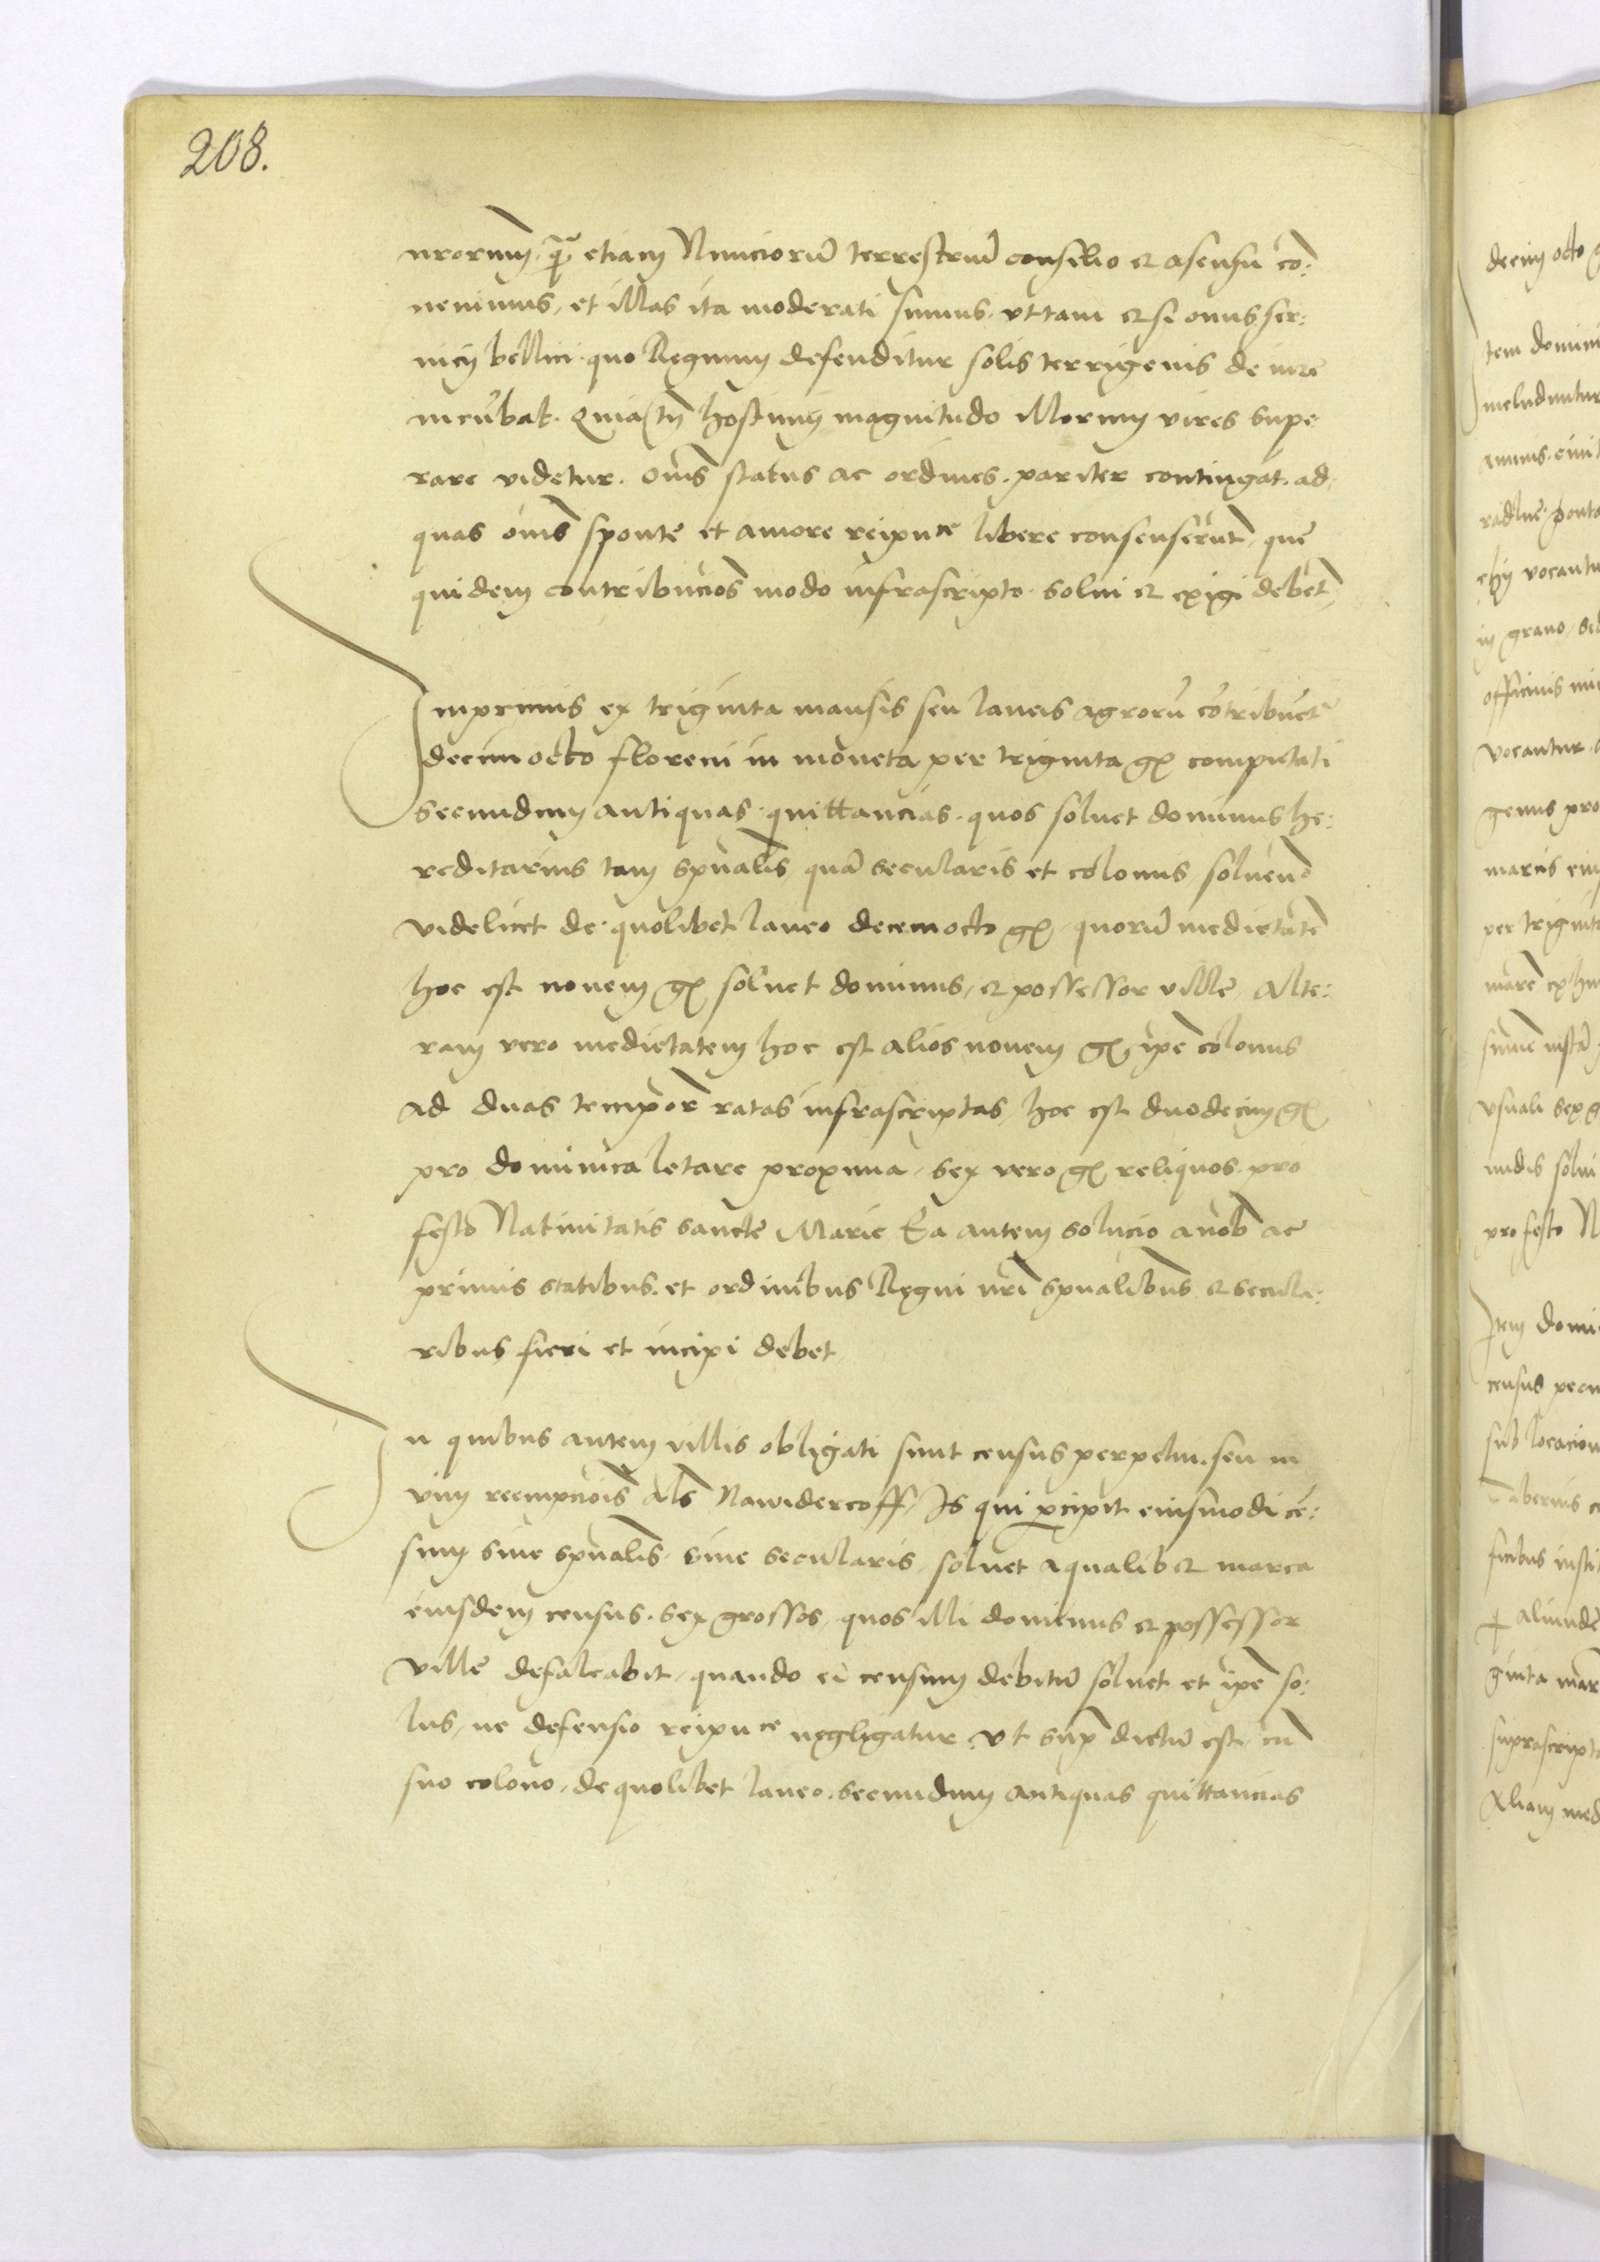 208.
nrorum, qͣ etiam Nunciorũ terrestriũ consilio et asensu cõ:
uenimus, et illas ita moderati sumus. vt tam etsi onus ser:
uicij bellici. quo Regnum defenditur solis terrigenis de iure
incubat. Quia tñ hostium magnitudo illorum vires supe
rare videtur. oms̃ status ac ordines. pariter contingat. ad
quas oms̃ sponte et amore reipuce libere consenserũt, que
quidem contribucioẽs modo infrascripto. solui et exigi debet̃
Imprimis ex triginta mansis seu laneis agrorũ cõtribuẽt̃
decim octo floreni in moneta per triginta gs̃ computati
secundum antiquas. quittancias. quos soluet dominus he:
reditarius tam spualis̃ quã secularis et colonus soluend̃
videlicet de. quolibet laneo decemocto gs̃, quorũ medietatẽ
hoc est nouem gs̃ soluet dominus, et possessor ville, Alte:
ram vero medietatem hoc est alios nouem gs̃, ipẽ colonus
ad duas tempor̃ ratas infrascriptas, hoc est duodecim gs̃
pro dominica letare proxima, sex vero gs̃ reliquos. pro
festo Natiuitatis sancte Marie Ea autem solucio a nob̃ ac
primis statibus. et ordinibus Regni nr̃i spualibus̃ et secula:
ribus fieri et incipi debet
In quibus autem villis obligati sunt census perpetui. seu in
vim reempcioĩs als̃ Nawidercoff, Is qui p̱cipit eiusmodi cẽ:
sum siue spualis̃. siue secularis, soluet a qualibet marca
eiusdem census. sex grossos, quos illi dominus et possessor
ville defalcabit, quando ei censum debitũ soluet et ipẽ so:
lus, ne defensio reipuce negligatur vt sup̃ dictũ est, cũ
suo colono, de quolibet laneo. secundum antiquas quittancias
decim octo
tem domini
includuntur
vocantu
in grano
officinis
vocantur
genus pro
per triginta
vsuali sex g
pro festo N
Item domi
census pecu
sub locacion
suprascripto
Aliam med